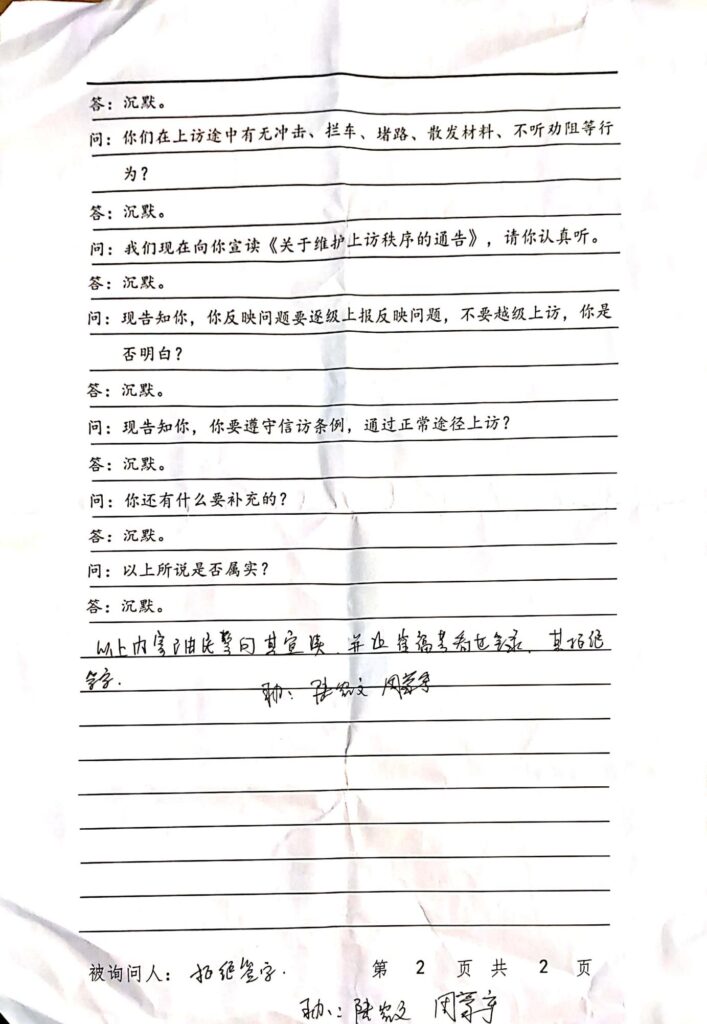 答：沉默。
问：你们在上访途中有无冲击、拦车、堵路、散发材料、不听劝阻等行
为？
答：沉默。
问：我们现在向你宣读《关于维护上访秩序的通告》，请你认真听。
答：沉默。
问：现告知你，你反映问题要逐级上报反映问题，不要越级上访，你是
否明白？
答：沉默。
问：现告知你，你要遵守信访条例，通过正常途径上访？
答：沉默。
问：你还有什么要补充的？
答：沉默。
问：以上所说是否属实？
答：沉默。
以上内容由民警向其宣读，并让 看过 录，其拒绝
签字。
被询问人： 拒绝签字.
第 2 页 共 2 页